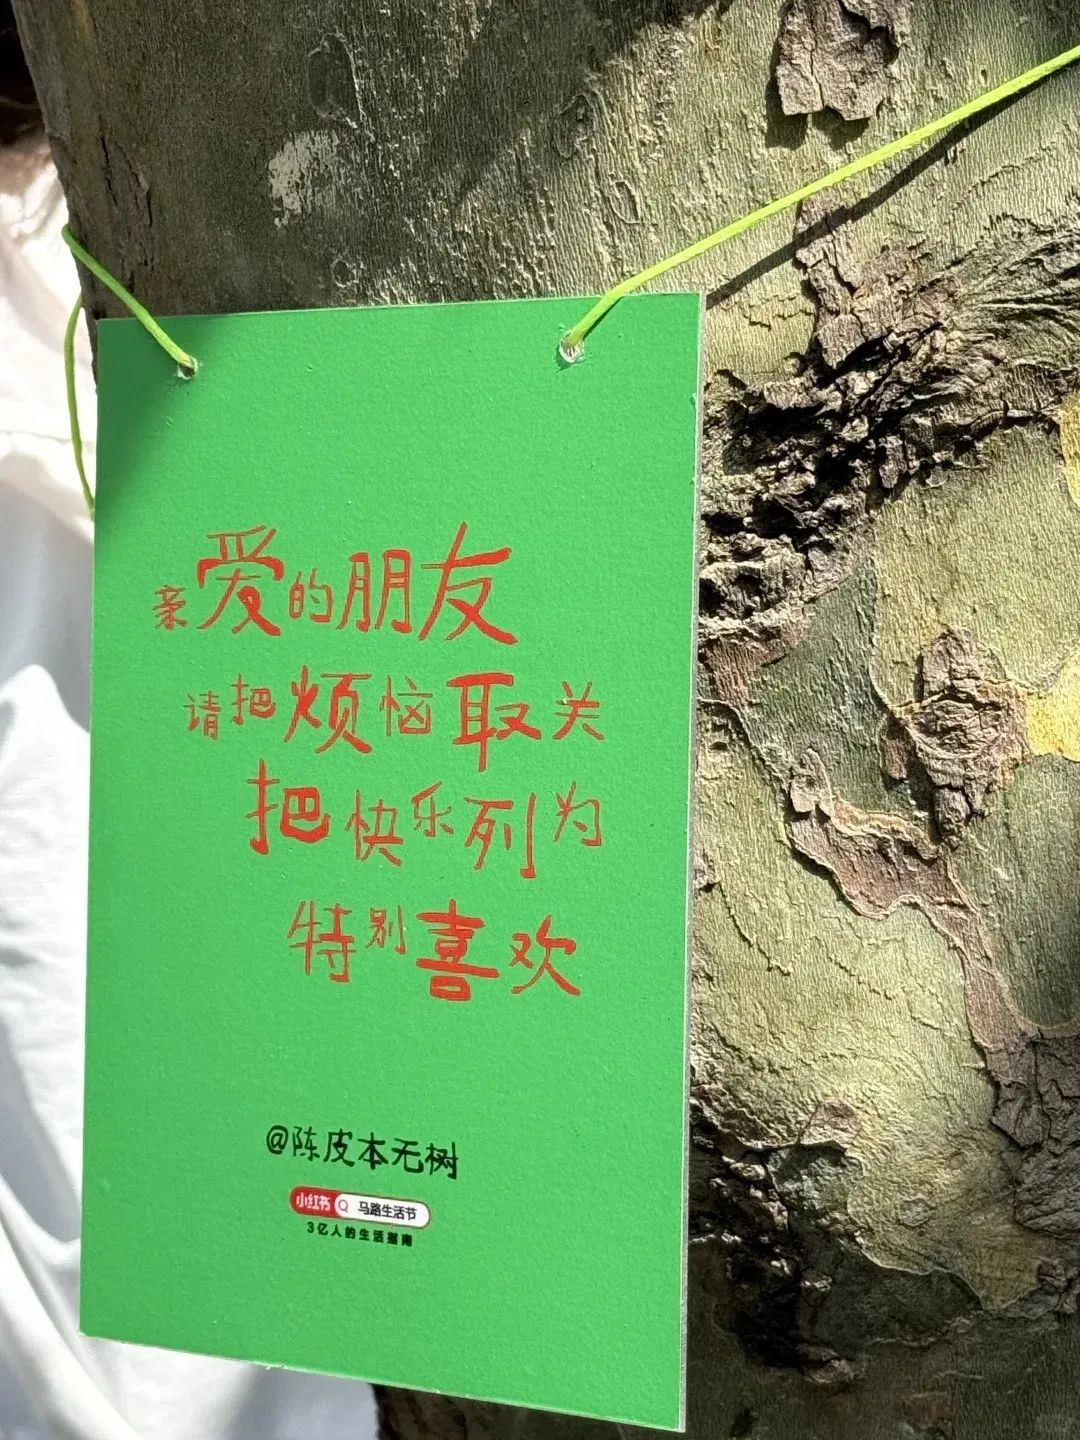 亲爱的朋友
请把烦恼取关
把快乐列为
特别喜欢
@陈皮本无树
小红书 马路生活节
3亿人的生活指南